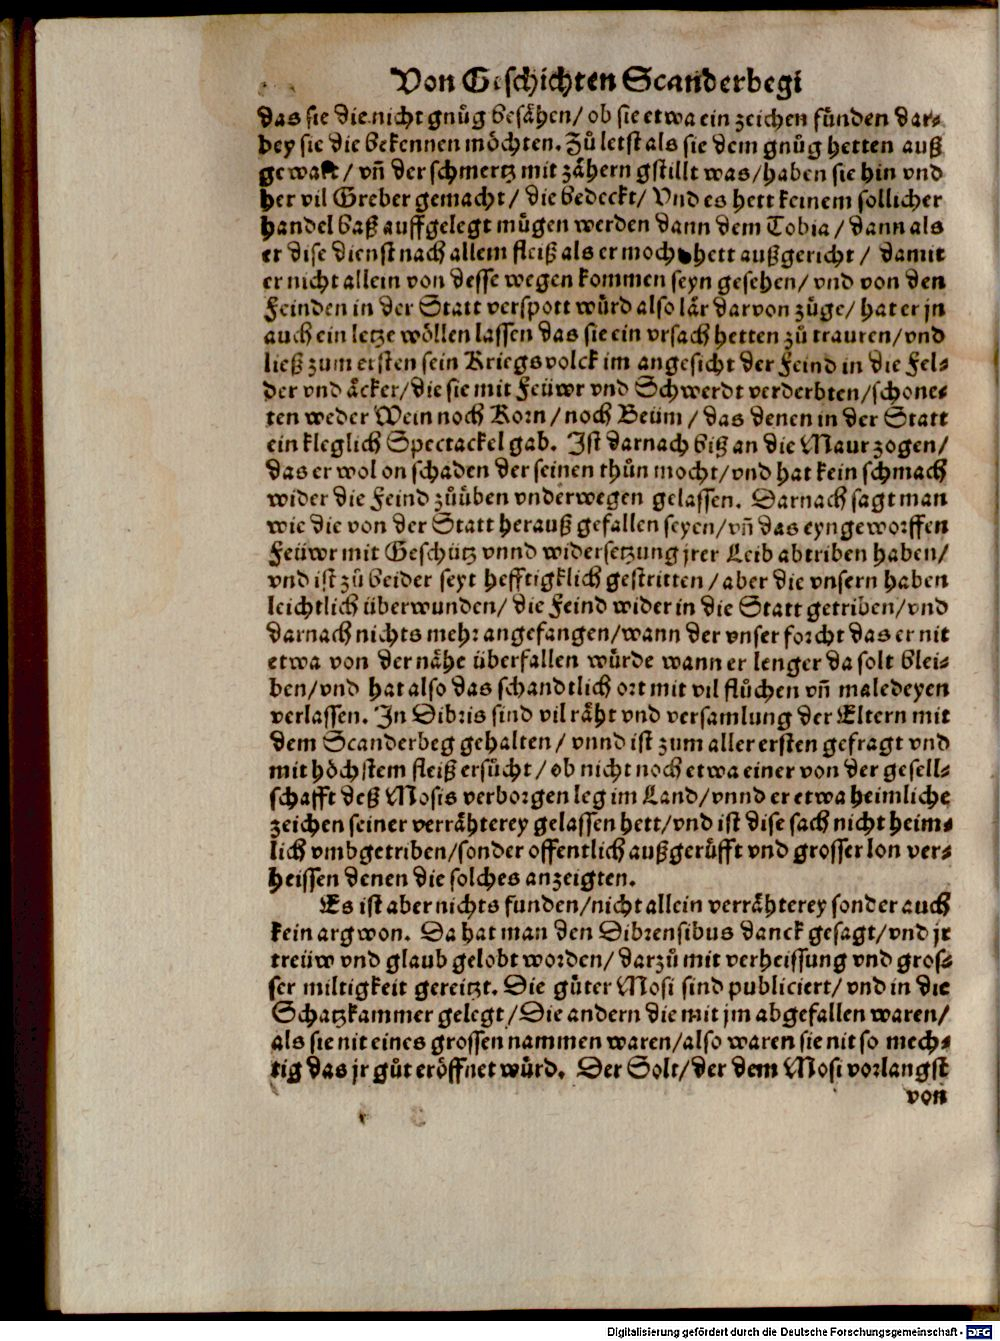 Von Geschichten Scanderbegi
das sie die nicht gnůg besähen/ ob sie etwa ein zeichen fünden dar-
bey sie die bekennen möchten. Zů letst als sie dem gnůg hetten auß
gewast/ vñ der schmertz mit zähern gstillt was/haben sie hin vnd
her vil Greber gemacht/ die bedeckt/ Vnd es hett keinem sollicher
handel baß auffgelegt mügen werden dann dem Tobia/ dann als
er dise dienst nach allem fleiß als er moch hett außgericht/ damit
er nicht allein von desse wegen kommen seyn gesehen/ vnd von den
Feinden in der Statt verspott würd also lär darvon züge/ hat er jn
auch ein letze wöllen lassen das sie ein vrsach hetten zů trauren/vnd
ließ zum ersten sein Kriegsvolck im angesicht der Feind in die Fel-
der vnd äcker/die sie mit Feüwr vnd Schwerdt verderbten/schone-
ten weder Wein noch Korn/ noch Beüm/ das denen in der Statt
ein kleglich Spectackel gab. Ist darnach biß an die Maur zogen/
das er wol on schaden der seinen thůn mocht/vnd hat kein schmach
wider die Feind zůüben vnderwegen gelassen. Darnach sagt man
wie die von der Statt herauß gefallen seyen/vñ das eyngeworffen
Feüwr mit Geschütz vnnd widersetzung jrer Leib abtriben haben/
vnd ist zů beider seyt hefftigklich gestritten/ aber die vnsern haben
leichtlich überwunden/ die Feind wider in die Statt getriben/vnd
darnach nichts mehr angefangen/wann der vnser forcht das er nit
etwa von der nähe überfallen würde wann er lenger da solt blei-
ben/vnd hat also das schandtlich ort mit vil flůchen vñ maledeyen
verlassen. In Dibris sind vil räht vnd versamlung der Eltern mit
dem Scanderbeg gehalten/ vnnd ist zum aller ersten gefragt vnd
mit höchstem fleiß ersůcht/ ob nicht noch etwa einer von der gesell-
schafft deß Mosis verborgen leg im Land/vnnd er etwa heimliche
zeichen seiner verrähterey gelassen hett/vnd ist dise sach nicht heim-
lich vmbgetriben/sonder offentlich außgerůfft vnd grosser lon ver-
heissen denen die solches anzeigten.
Es ist aber nichts funden/nicht allein verrähterey sonder auch
kein argwon. Da hat man den Dibrensibus danck gesagt/vnd jr
treüw vnd glaub gelobt worden/ darzů mit verheissung vnd gros-
ser miltigkeit gereitzt. Die güter Mosi sind publiciert/ vnd in die
Schatzkammer gelegt/Die andern die mit jm abgefallen waren/
als sie nit eines grossen nammen waren/also waren sie nit so mech-
tig das jr gůt eröffnet würd. Der Solt/der dem Mosi vorlangst
von
Digitalisierung gefördert durch die Deutsche Forschungsgemeinschaft - DFG